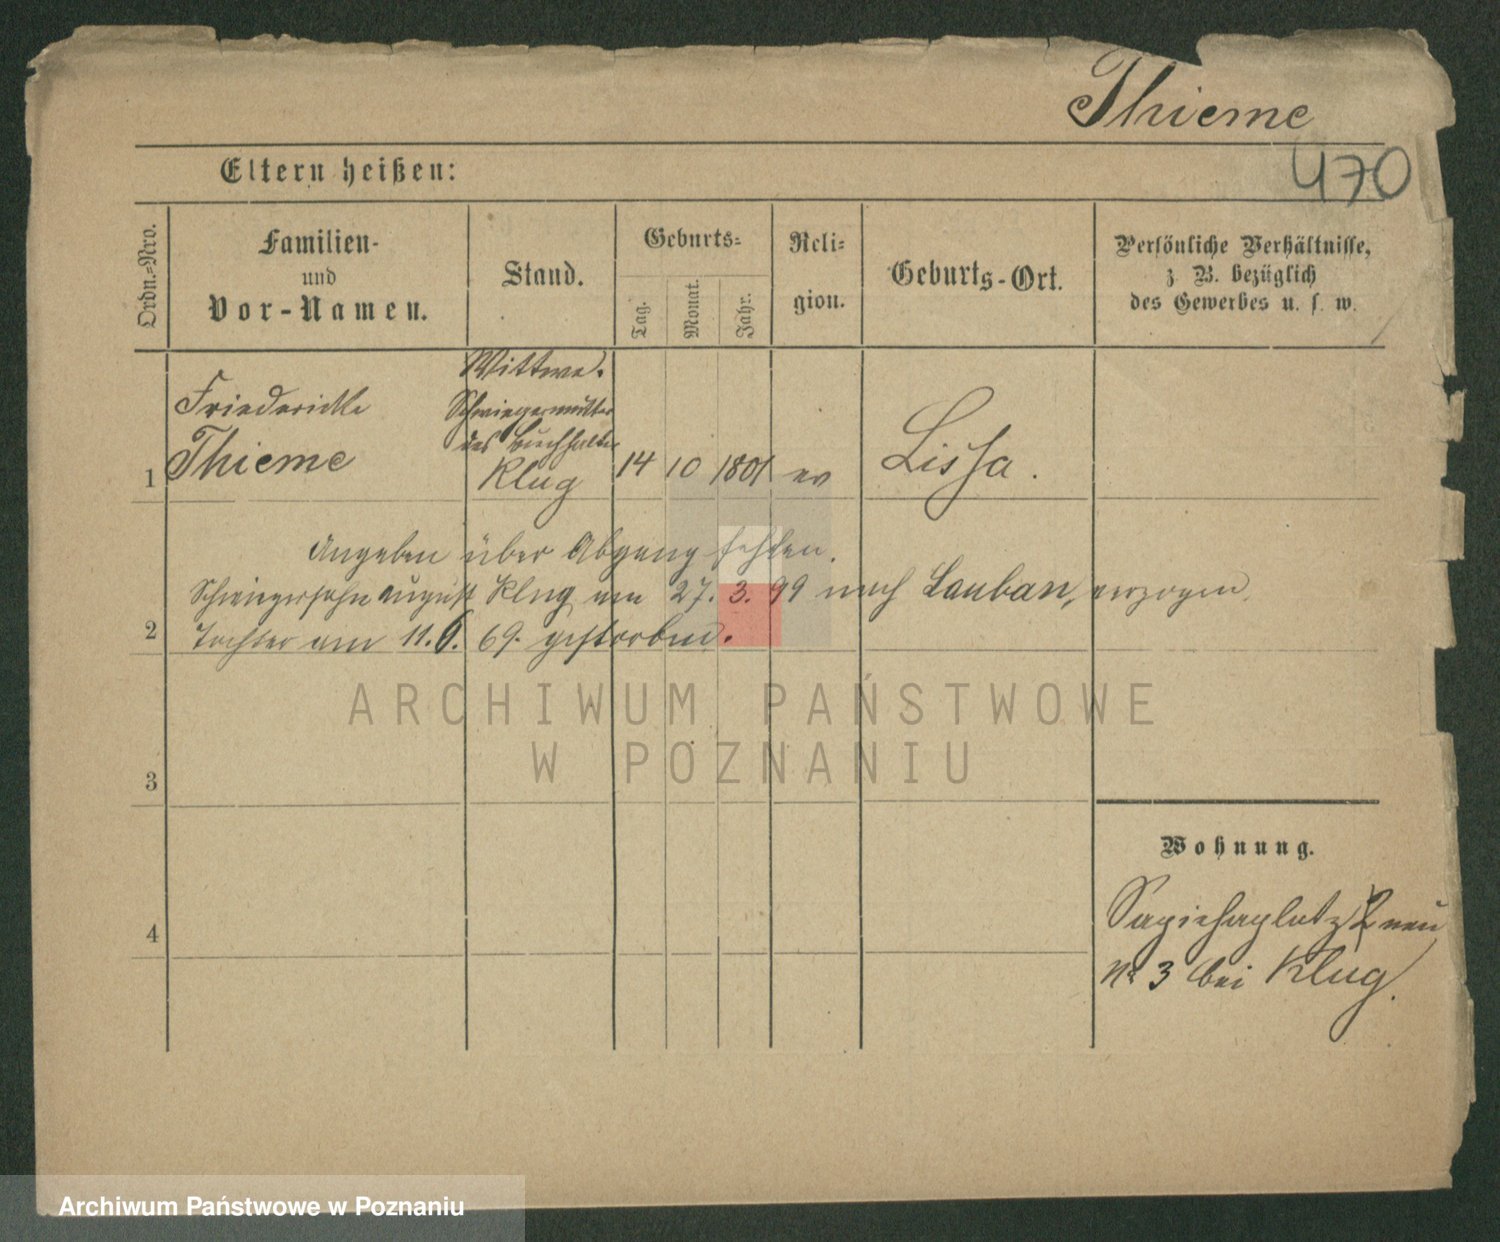 Thieme
470
Eltern heißen:
Ordn.-Nro.
Familien-
und
Vor-Namen.
Stand.
Geburts-
Tag.
Monat.
Jahr.
Reli-
gion.
Geburts-Ort.
Persönliche Verhältnisse,
z. B. bezüglich
des Gewerbes u. s. w.
1
Friedericke
Thieme
Wittwe.
Schwiegermutter
des Buchhalter
Klug
14
10
1801
ev
Lissa.
Angaben über Abgang fehlen.
Schwiegersohn August Klug am 27. 3. 99 nach Lauban, verzogen.
2
Tochter am 11. 6. 69. gestorben.
ARCHIWUM PAŃSTWOWE
W POZNANIU
3
4
Wohnung.
Sapiehaplatz 2 neu
No 3 bei Klug.
Archiwum Państwowe w Poznaniu